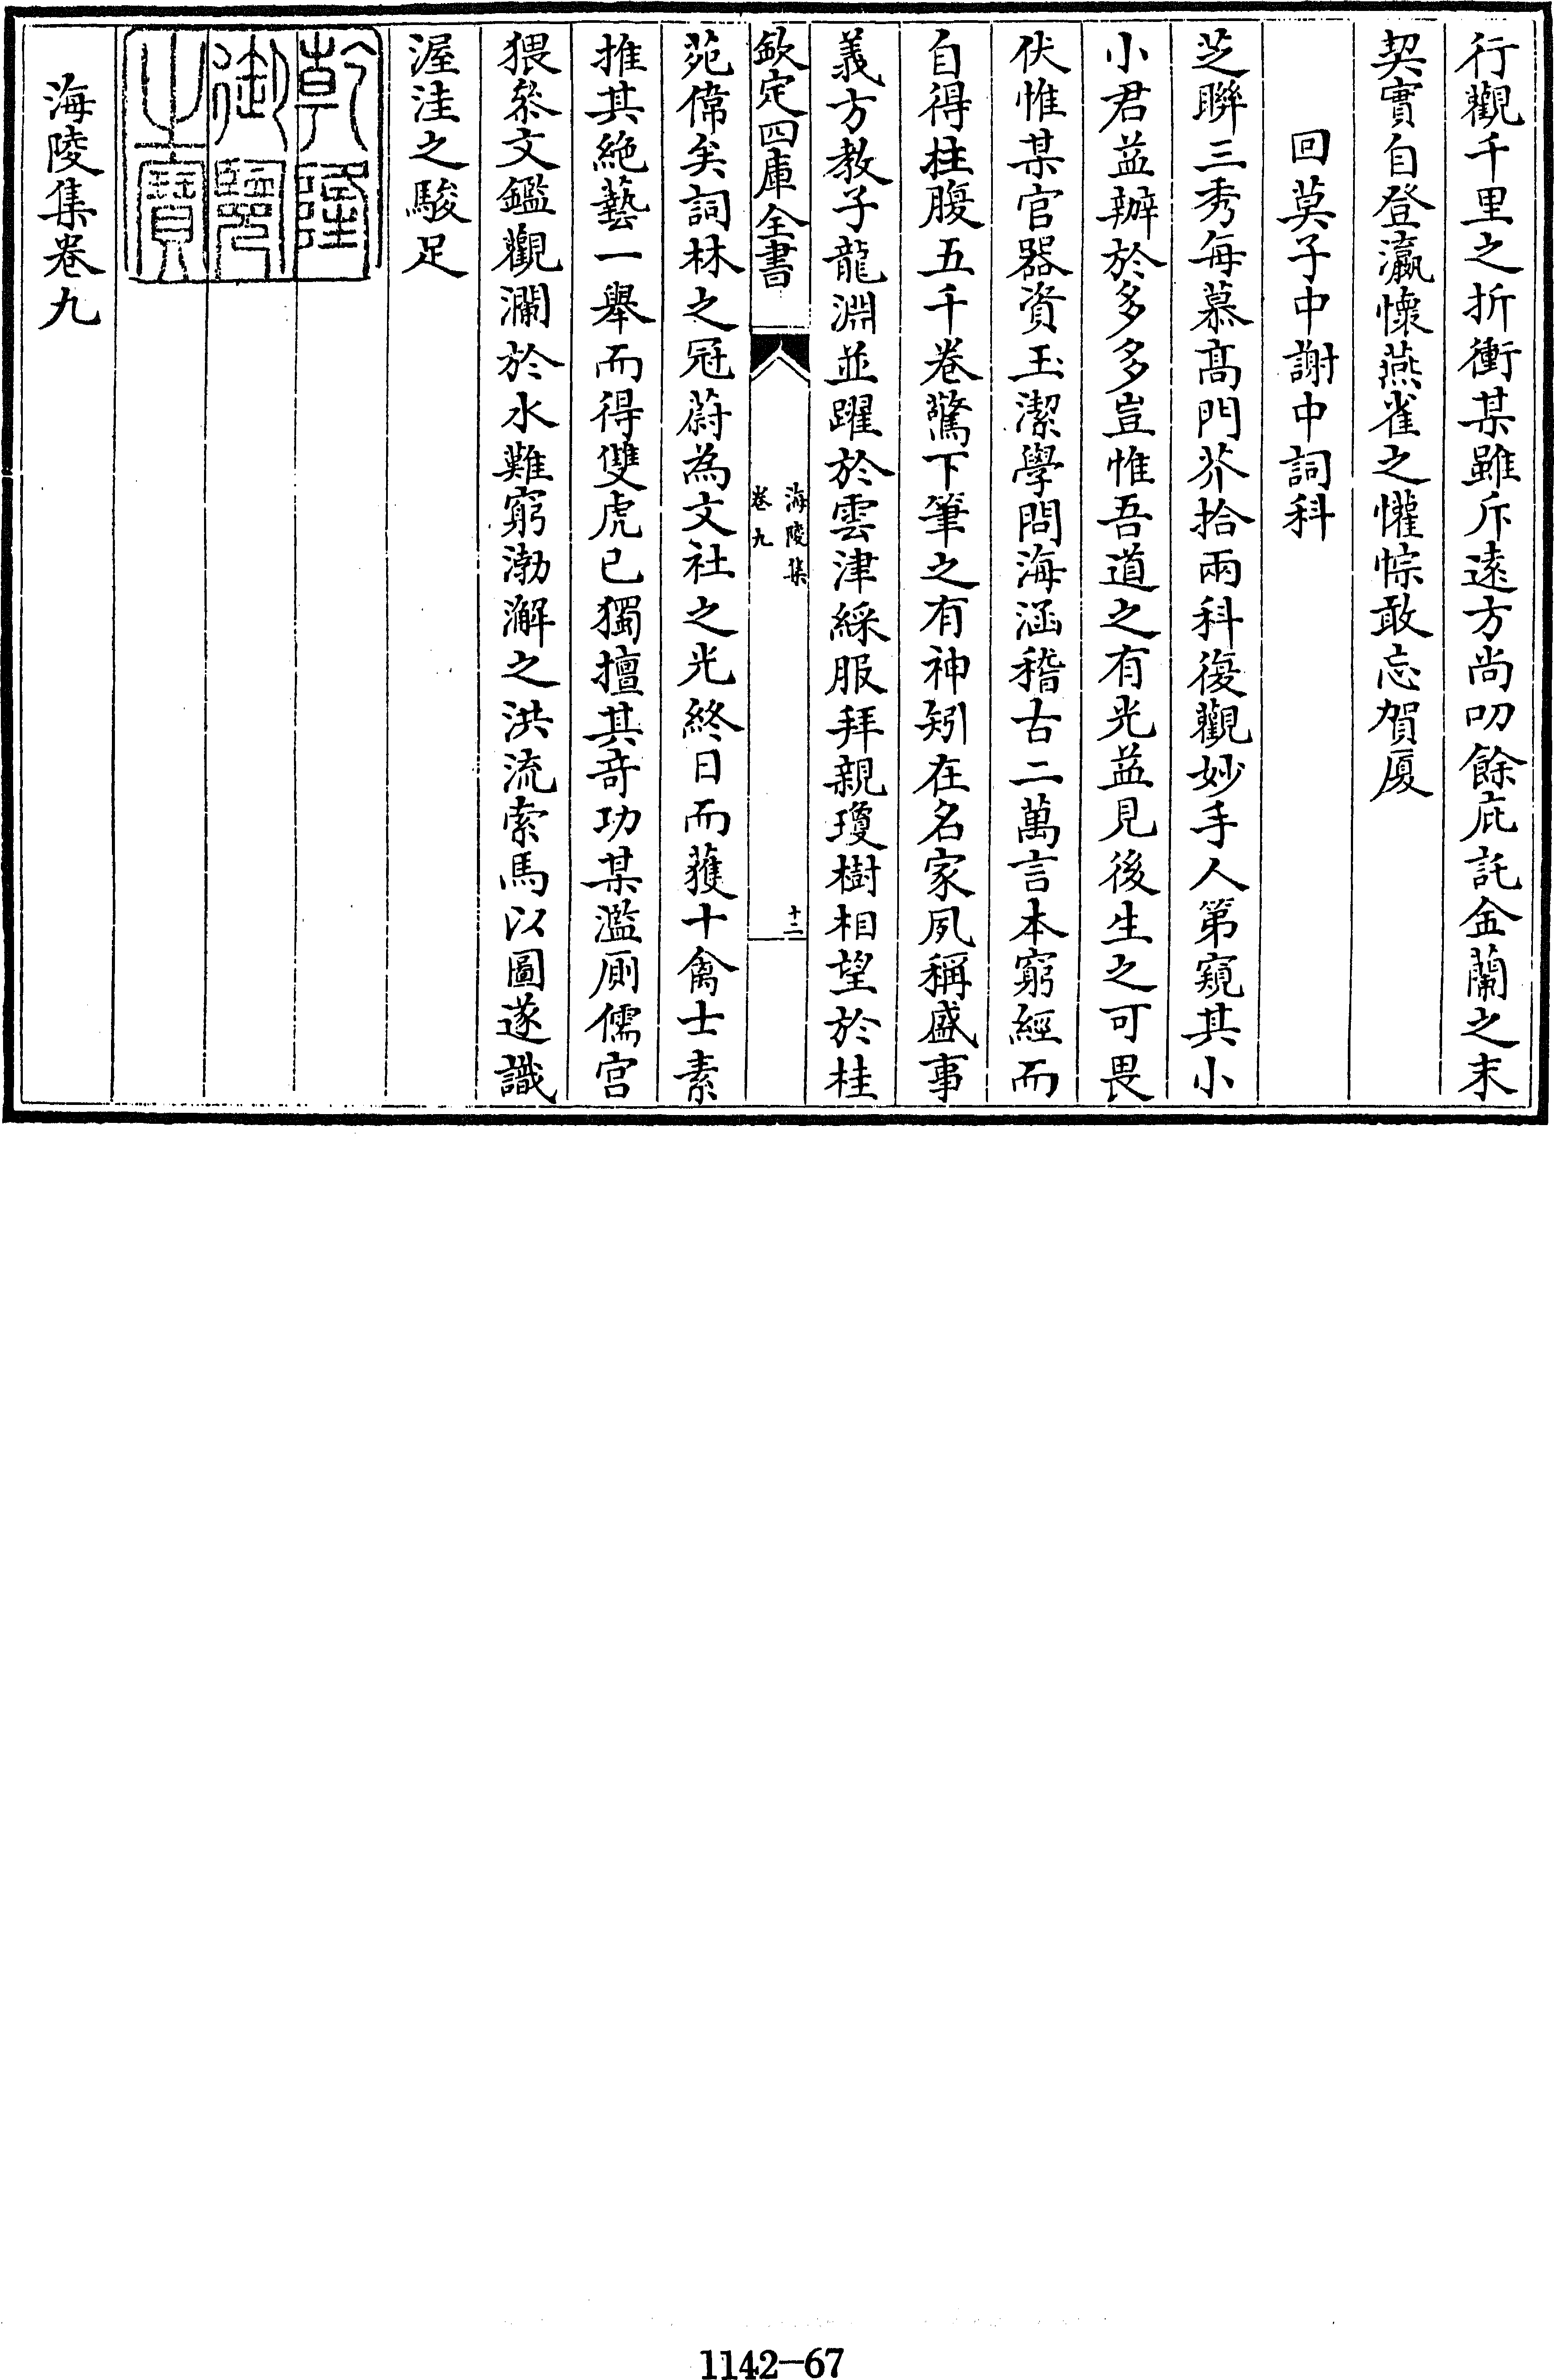 行觀千里之折衝某雖斥遠方尚叨餘庇託金蘭之末
契實自登瀛懷燕雀之懽悰敢忘賀厦
回莫子中謝中詞科
芝聨三秀每慕髙門芥拾兩科復觀妙手人第窺其小
小君益辦於多多豈惟吾道之有光益見後生之可畏
伏惟某官器資玉潔學問海涵稽古二萬言本窮經而
自得拄腹五千卷驚下筆之有神矧在名家夙稱盛事
義方教子龍淵並躍於雲津綵服拜親瓊樹相望於桂
欽定四庫全書
海陵集
卷九
十二
苑偉矣詞林之冠蔚為文社之光終日而獲十禽士素
推其絶藝一舉而得雙虎已獨擅其奇功某濫厠儒宫
猥叅文鑑觀瀾於水難窮渤澥之洪流索馬以圖遂識
渥洼之駿足
乾隆
御覽
之寶
海陵集卷九
1142-67